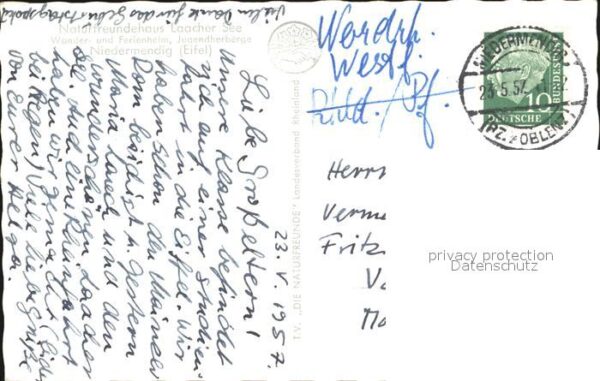 Vielen Dank für das Geburtstagspaket
Naturfreundehaus Laacher See
Wander- und Ferienheim, Jugendherberge
Niedermendig (Eifel)
23. V. 1957.
Liebe Großeltern!
Unsere Klasse befindet
sich auf einer Studien-
fahrt in die Eifel. Wir
haben schon den Mainzer
Dom besichtigt. Gestern
Maria Laach und den
wunderschönen Laacher
See. Auf eine Rheinfahrt
haben wir gemacht (leider
bei Regen). Viele liebe Grüße
von Eurer Helga.
T.V. „DIE NATURFREUNDE" Landesverband Rheinland
Werdrh.
Westf.
Pf.
NIEDERMENDIG
23.5.57
(BZ. KOBLENZ)
10
DEUTSCHE
BUNDESPOST
Herrn
Verme
Fritz
V
privacy protection
Datenschutz